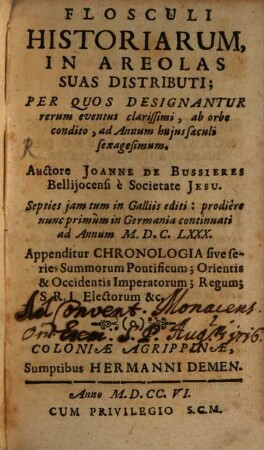 FLOSCULI
HISTORIARUM,
IN AREOLAS
SUAS DISTRIBUTI;
PER QUOS DESIGNANTUR
rerum eventus clarissimi, ab orbe
condito, ad Annum hujus sæculi
sexagesimum.
Auctore JOANNE DE BUSSIERES
Bellijocensi è Societate JESU.
Septies jam tum in Galliis editi: prodiêre
nunc primùm in Germania continuati
ad Annum M. D. C. LXXX.
Appenditur CHRONOLOGIA sive se-
ries Summorum Pontificum; Orientis
& Occidentis Imperatorum; Regum;
S.R.I. Electorum &c.
Ad Convent. Monacens.
Ord. Erem. S. P. Aug. 1716.
COLONIÆ AGRIPPINÆ,
Sumptibus HERMANNI DEMEN.
Anno M. D. CC. VI.
CUM PRIVILEGIO S.C.M.